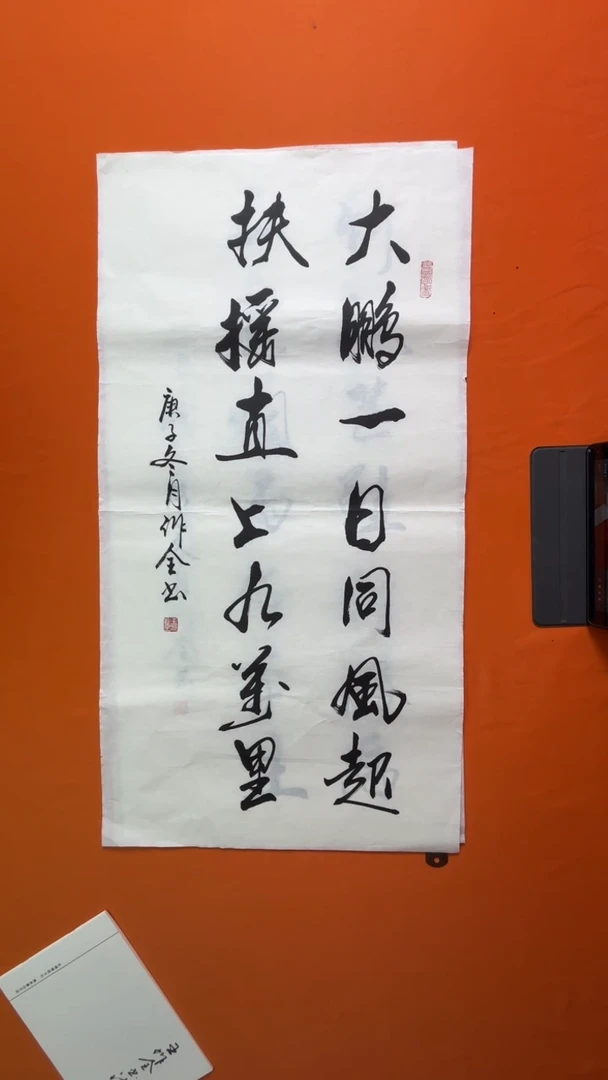 大鹏一日同風起
扶摇直上九萬里
庚子冬月作全书